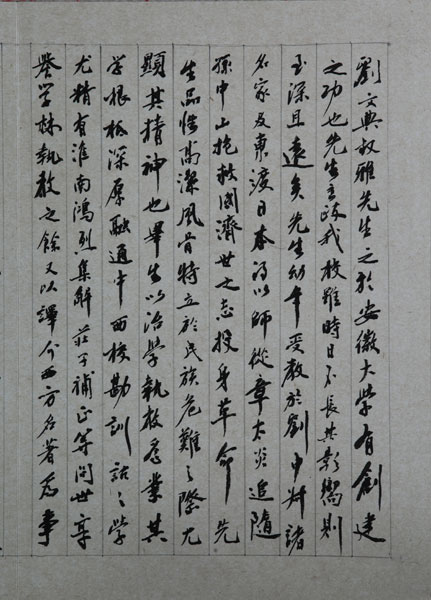 劉文典叔雅先生之於安徽大學有創建
之功也先生主政我校雖時日不長其影響則
至深且遠矣先生幼年受教於劉申叔諸
名家及東渡日本得以師從章太炎追隨
孫中山抱救國濟世之志投身革命先
生品性高潔風骨特立於民族危難之際尤
顯其精神也畢生以治學執教為業其
學根柢深厚融通中西校勘訓詁之學
尤精有淮南鴻烈集解莊子補正等問世享
譽學林執教之餘又以譯介西方名著為事